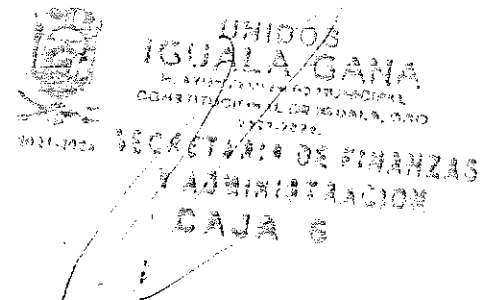 UNIDOS
IGUALA GANA
H. AYUNTAMIENTO MUNICIPAL
CONSTITUCIONAL DE IGUALA, GRO
2021-2024
SECRETARIA DE FINANZAS
Y ADMINISTRACION
CAJA 6